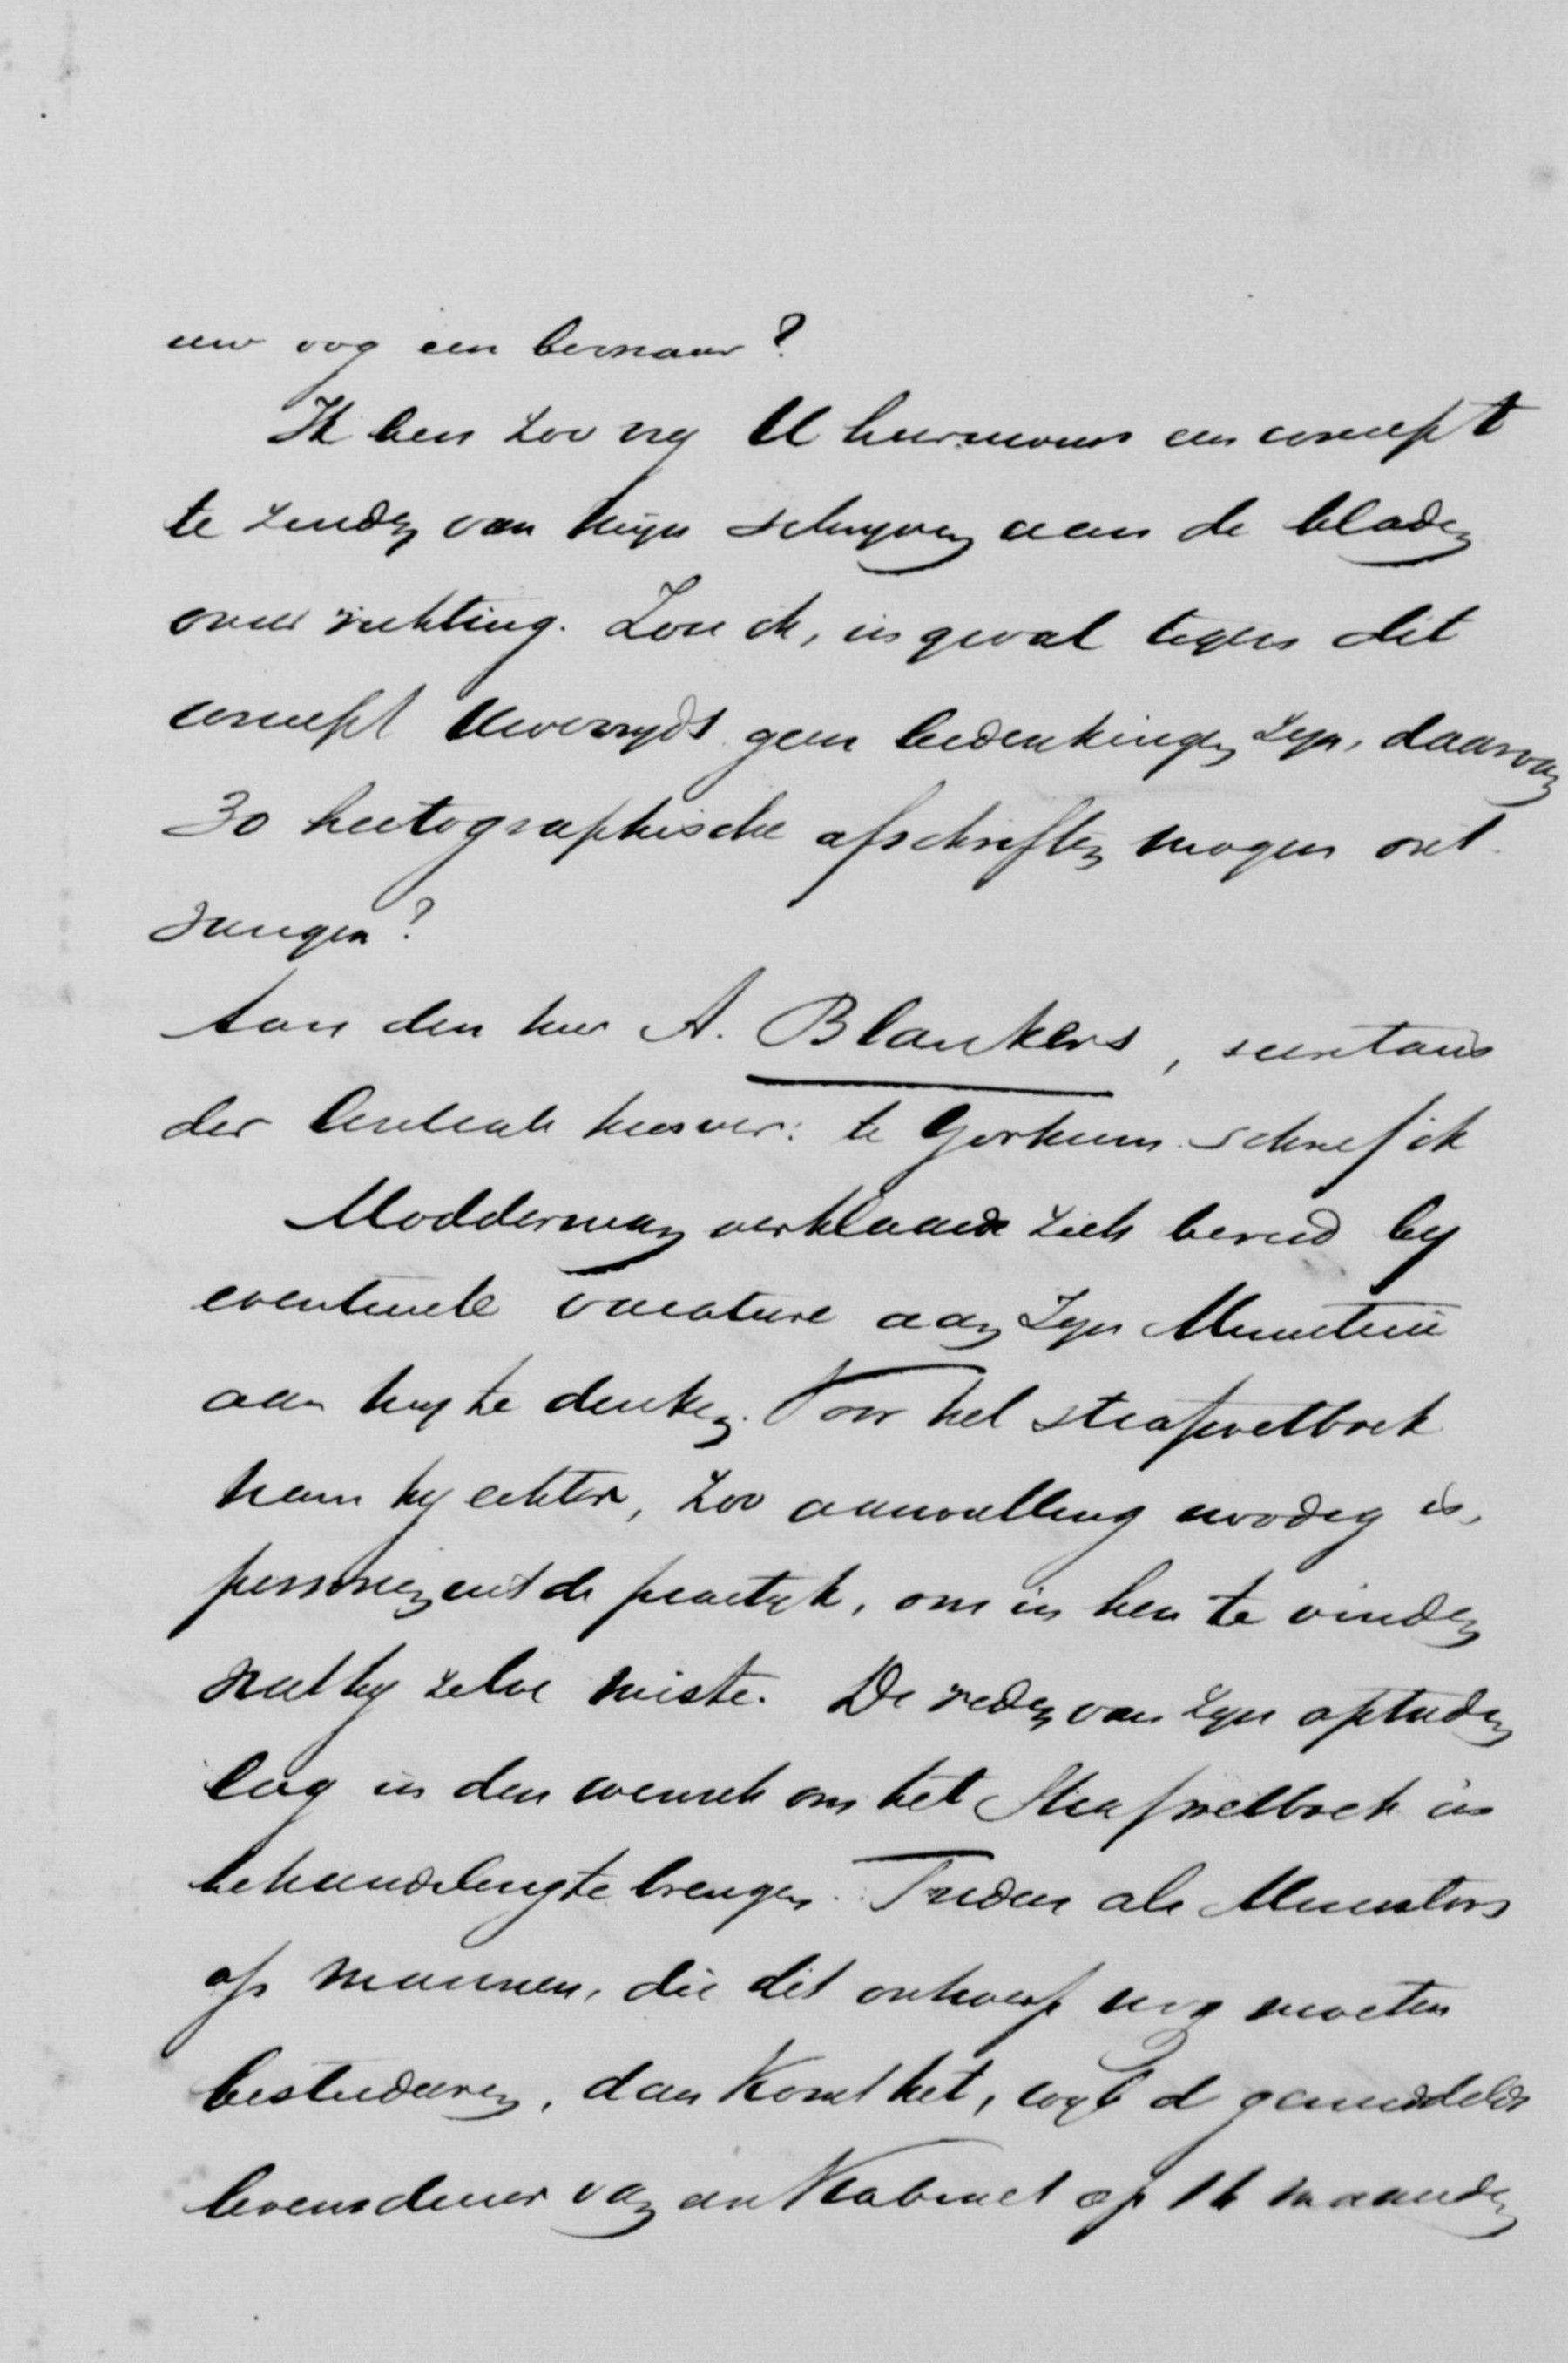 uw oog een bezwaar?
Ik ben zoo vrij U hiernevens een concept
te zenden van mijn schrijven aan de bladen
over richting. Zou ik, ingeval tegen dit
concept Uwerzijds geen bedenkingen zijn, daarvan
30 hectographische afschriften mogen ont-
vangen?
Aan den heer A. Blankers, secretaris
der Centrale kiesver: te Gorkum schreef ik
Modderman verklaarde zich bereid bij
eventueele vacature aan zijn Ministerie
aan mij te denken. Voor het strafwetboek
nam hij echter, zoo aanvulling noodig is,
personen uit de practijk, om in hen te vinden
wat hij zelve miste. De reden van zijn optreden
lag in den wensch om het Strafwetboek in
behandeling te brengen. Treden als Ministers
op mannen, die dit ontwerp nog moeten
bestudeeren, dan komt het, wijl de gemiddelde
levensduur van een Kabinet op 16 maanden